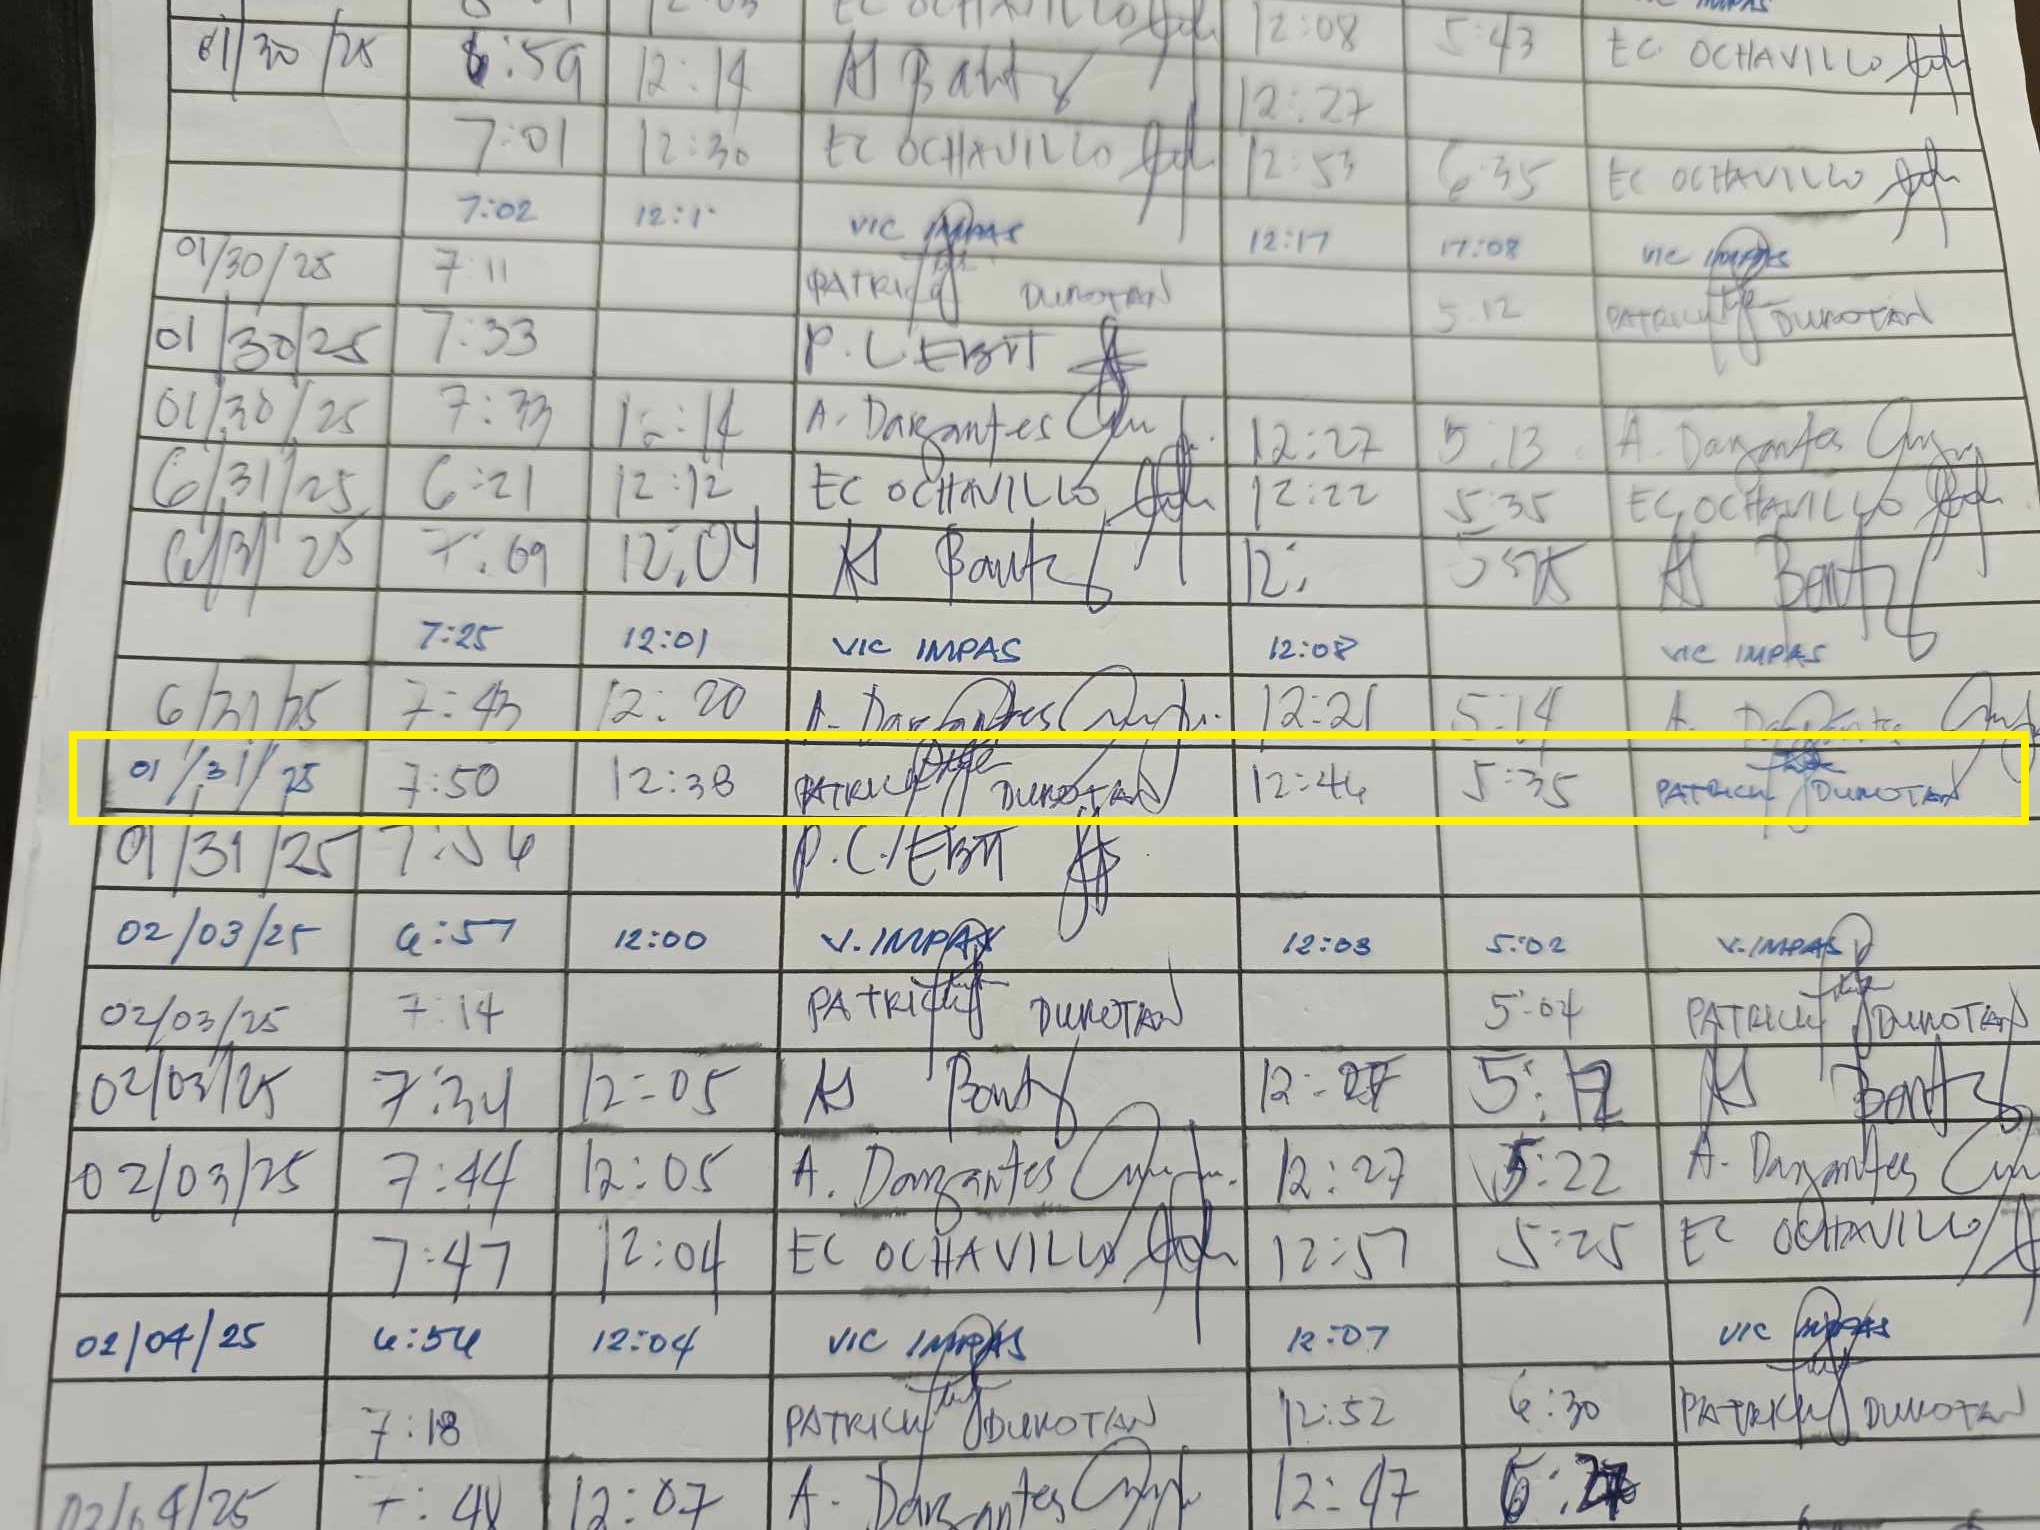 12:08 5:43 EC OCHAVILLO
01/30/25 6:59 12:14 12:27
7:01 12:30 EC OCHAVILLO 12:53 6:35 EC OCHAVILLO
7:02 VIC IMPAS 12:17 17:08 VIC IMPAS
01/30/25 7:11 PATRICK DUMOTAN 5:12 PATRICK DUMOTAN
01/30/25 7:33
01/30/25 7:33 12:14 A. Darzantes 12:27 5:13 A. Darzantes
6/31/25 6:21 12:12 EC OCHAVILLO 12:22 5:35 EC OCHAVILLO
25 7:09 12:04 12:
7:25 12:01 VIC IMPAS 12:08 VIC IMPAS
6/31/25 7:43 12:20 A. Darzantes 12:21 5:14 A. Darzantes
01/31/25 7:50 12:38 PATRICK DUMOTAN 12:46 5:35 PATRICK DUMOTAN
01/31/25 7:56
02/03/25 6:57 12:00 V. IMPAS 12:03 5:02 V. IMPAS
02/03/25 7:14 PATRICK DUMOTAN 5:04 PATRICK DUMOTAN
02/03/25 7:34 12:05 12:27
02/03/25 7:44 12:05 A. Darzantes 12:27 5:22 A. Darzantes
7:47 12:04 EC OCHAVILLO 12:57 5:25 EC OCHAVILLO
02/04/25 6:56 12:04 VIC IMPAS 12:07 VIC IMPAS
7:18 PATRICK DUMOTAN 12:52 6:30 PATRICK DUMOTAN
02/04/25 7:48 12:07 A. Darzantes 12:47